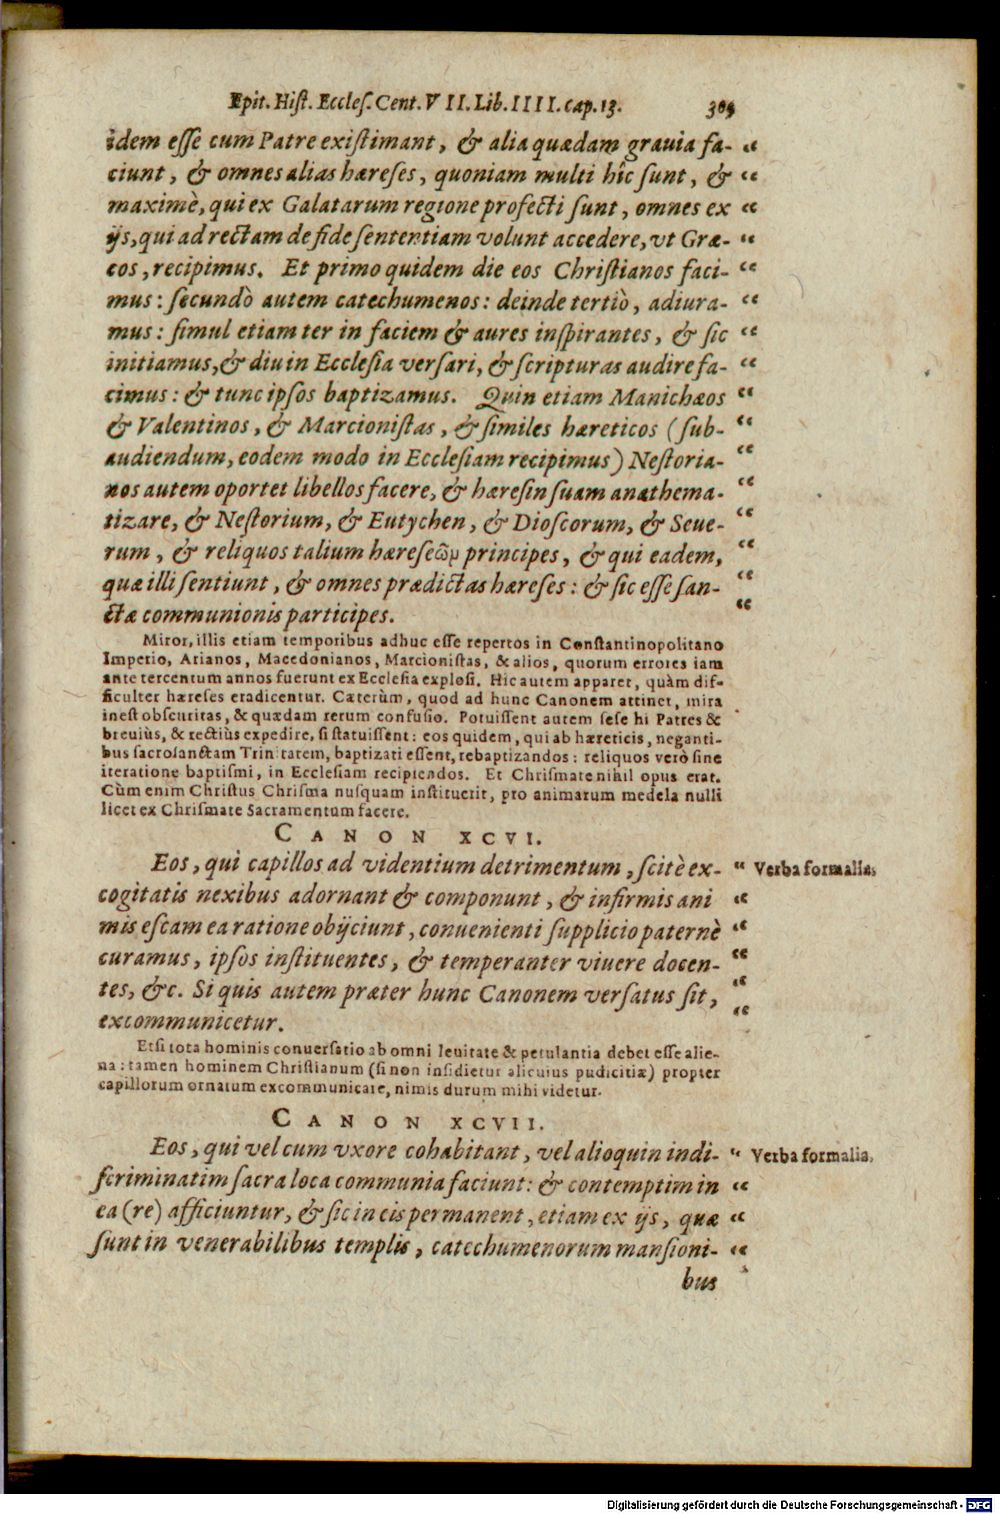 Epit. Hiſt. Eccleſ. Cent. VII. Lib. IIII. cap. 13.
idem eſſe cum Patre exiſtimant, & alia quædam grauia fa- “
ciunt, & omnes alias hæreſes, quoniam multi hîc ſunt, & “
maximè, qui ex Galatarum regione profecti ſunt, omnes ex “
ijs, qui ad rectam de fide ſententiam volunt accedere, vt Græ- “
cos, recipimus. Et primo quidem die eos Chriſtianos faci- “
mus: ſecundò autem catechumenos: deinde tertiò, adiura- “
mus: ſimul etiam ter in faciem & aures inſpirantes, & ſic “
initiamus, & diu in Eccleſia verſari, & ſcripturas audire fa- “
cimus: & tunc ipſos baptizamus. Quin etiam Manichæos “
& Valentinos, & Marcioniſtas, & ſimiles hæreticos (ſub- “
audiendum, eodem modo in Eccleſiam recipimus) Neſtoria- “
nos autem oportet libellos facere, & hæreſin ſuam anathema- “
tizare, & Neſtorium, & Eutychen, & Dioſcorum, & Seue- “
rum, & reliquos talium hæreſεῶμ principes, & qui eadem, “
quæ illi ſentiunt, & omnes prædictas hæreſes: & ſic eſſe ſan- “
ctæ communionis participes. “
Miror, illis etiam temporibus adhuc eſſe repertos in Conſtantinopolitano
Imperio, Arianos, Macedonianos, Marcioniſtas, & alios, quorum errores iam
ante tercentum annos fuerunt ex Eccleſia exploſi. Hic autem apparet, quàm dif-
ficulter hæreſes eradicentur. Cæterùm, quod ad hunc Canonem attinet, mira
ineſt obſcuritas, & quædam rerum confuſio. Potuiſſent autem ſeſe hi Patres &
breuiùs, & rectiùs expedire, ſi ſtatuiſſent: eos quidem, qui ab hæreticis, neganti-
bus ſacroſanctam Trinitatem, baptizati eſſent, rebaptizandos: reliquos verò ſine
iteratione baptiſmi, in Eccleſiam recipiendos. Et Chriſmate nihil opus erat.
Cùm enim Chriſtus Chriſma nuſquam inſtituerit, pro animarum medela nulli
licet ex Chriſmate Sacramentum facere.
CANON XCVI.
Eos, qui capillos ad videntium detrimentum, ſcitè ex- “ Verba formalia.
cogitatis nexibus adornant & componunt, & infirmis ani “
mis eſcam ea ratione obijciunt, conuenienti ſupplicio paternè “
curamus, ipſos inſtituentes, & temperanter viuere docen- “
tes, &c. Si quis autem præter hunc Canonem verſatus ſit, “
excommunicetur. “
Etſi tota hominis conuerſatio ab omni leuitate & petulantia debet eſſe alie-
na: tamen hominem Chriſtianum (ſi non inſidietur alicuius pudicitiæ) propter
capillorum ornatum excommunicare, nimis durum mihi videtur.
CANON XCVII.
Eos, qui vel cum vxore cohabitant, vel alioquin indi- “ Verba formalia.
ſcriminatim ſacra loca communia faciunt: & contemptim in “
ea (re) afficiuntur, & ſic in eis permanent, etiam ex ijs, quæ “
ſunt in venerabilibus templis, catechumenorum manſioni- “
bus
Digitalisierung gefördert durch die Deutsche Forschungsgemeinschaft - DFG